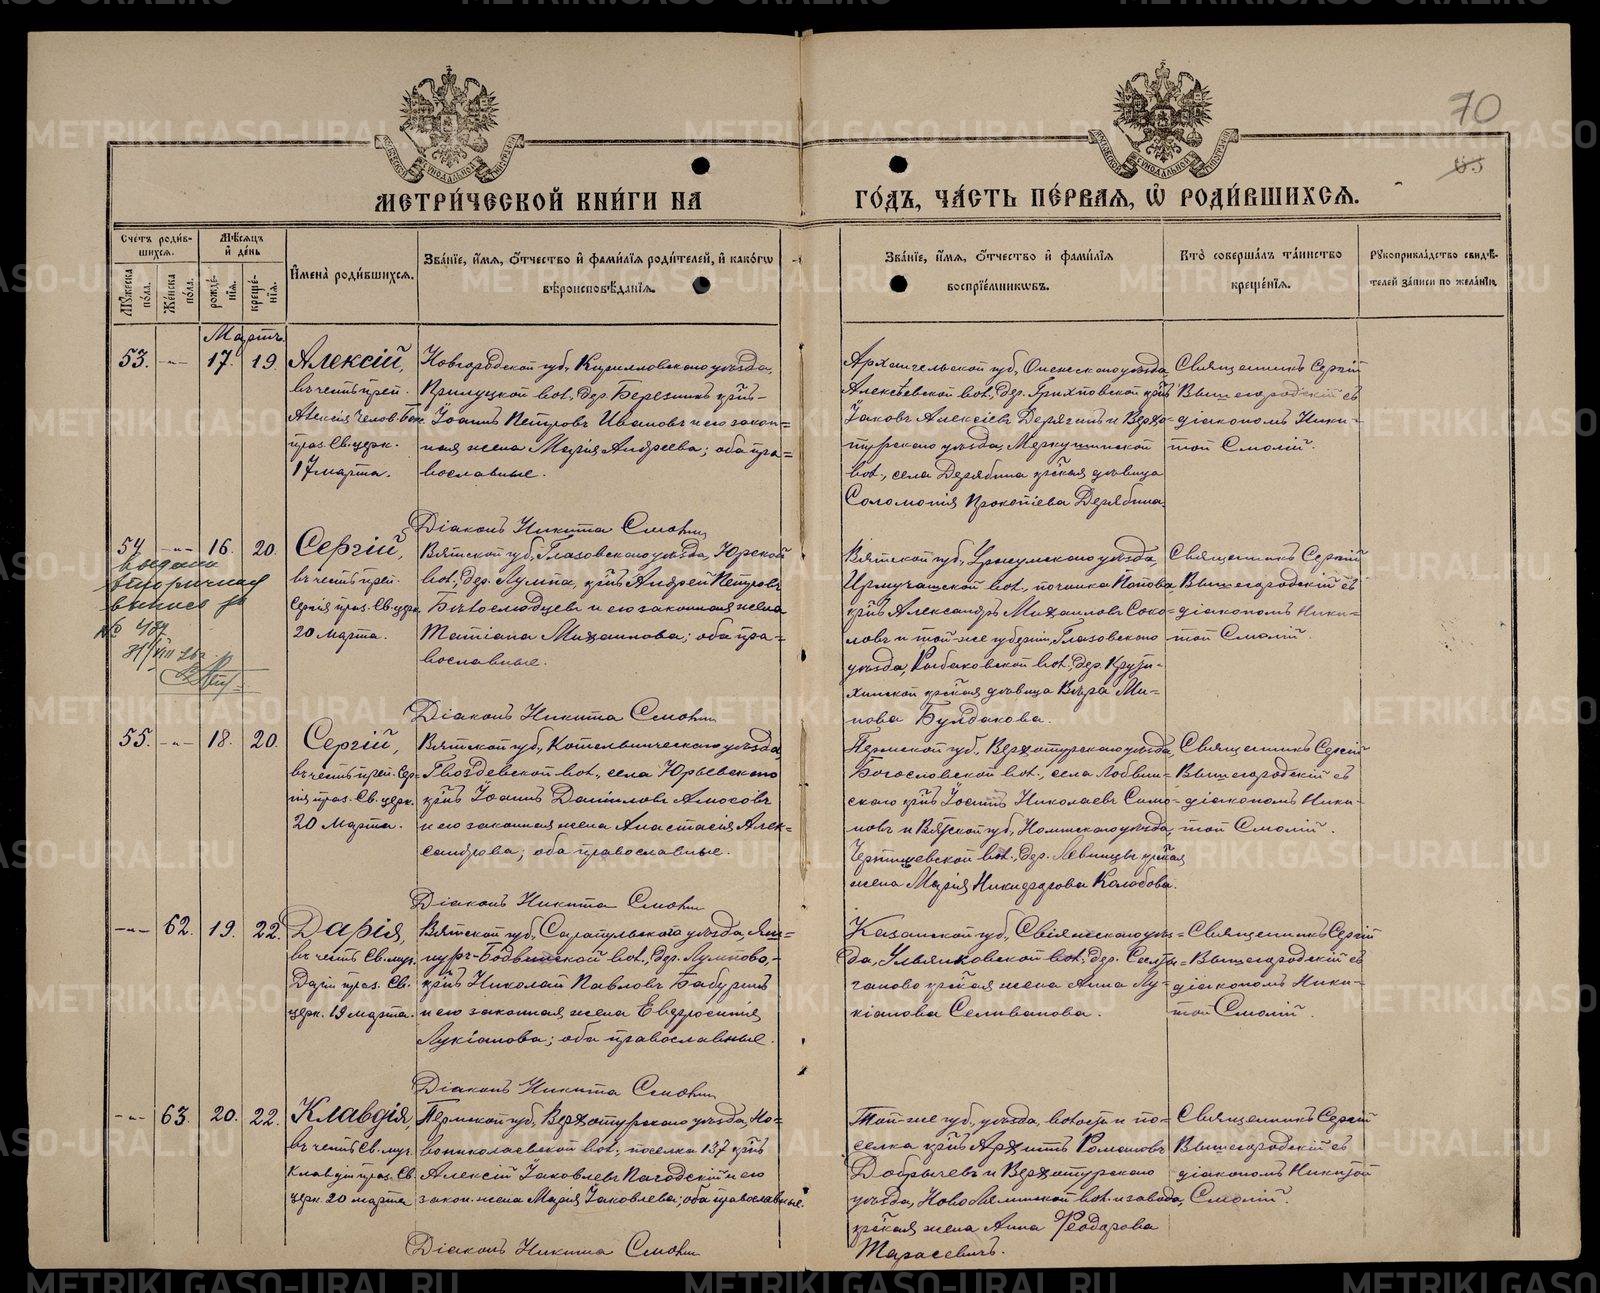 70
85
МЕТРИ́ЧЕСКОЙ КНИ́ГИ НА ГО́ДЪ, ЧА́СТЬ ПЕ́РВАЯ, Ѿ РОДИ́ВШИХСЯ.
Сче́тъ роди́в-
шихся.
Му́жеска по́ла.
Же́нска по́ла.
Мѣ́сяцъ
и де́нь
рожде́-
нія.
креще́-
нія.
Имена̀ роди́вшихся.
Зва́ніе, и́мя, о́тчество и фами́лія роди́телей, и како́гѡ
вѣроисповѣ́данія.
Зва́ніе, и́мя, о́тчество и фами́лія
воспріе́мникѡвъ.
Кто̀ соверша́лъ та́инство
креще́нія.
Рꙋкоприкла́дство свидѣ́-
телей за́писи по жела́нію.
Мартъ.
53. -"- 17. 19.
Алексій,
въ честь преп.
Алексія Челов. Бож.
праз. Св. церк.
17 марта.
Новгородской губ., Кирилловскаго уѣзда,
Прилуцкой вол., дер. Березникъ кр̃нъ-
Іоаннъ Петровъ Ивановъ и его закон-
ная жена Марія Андреева; оба пра-
вославные.
Діаконъ Никита Смолин
Архангельской губ., Онежскаго уѣзда,
Алексѣевской вол., дер. кр̃нъ
Іаковъ Алексіевъ Дерягинъ и Верхо-
турскаго уѣзда, Меркушинской
вол., села Дерябина кр̃ская дѣвица
Соломонія Прокопіева Дерябина.
Священникъ Сергій
Вышегородскій съ
діакономъ Ники-
той Смолин.
54 -"- 16. 20.
выдана
вторичная
выпись за
№ 489
31/VIII
Сергій,
въ честь преп.
Сергія праз. Св. церк.
20 марта.
Вятской губ., Глазовскаго уѣзда, Юрской
вол., дер. Лумпа, кр̃нъ Андрей Петровъ
и его законная жена
Татіана Михаилова; оба пра-
вославные.
Діаконъ Никита Смолин
Вятской губ., Уржумскаго уѣзда,
вол., починка Попова
кр̃нъ Александръ Михаиловъ Соко-
ловъ и той-же губерніи, Глазовскаго
уѣзда, Рыбаковской вол., дер. Крути-
хинской кр̃ская дѣвица Вѣра Ми-
нова Булдакова.
Священникъ Сергій
Вышегородскій съ
діакономъ Ники-
той Смолин.
55. -"- 18. 20.
Сергій,
въ честь преп. Сер-
гія праз. Св. церк.
20 марта.
Вятской губ., Котельническаго уѣзда,
Гвоздевской вол., села Юрьевскаго
кр̃нъ Іоаннъ Даніиловъ Амосовъ
и его законная жена Анастасія Алек-
сандрова; оба православные.
Діаконъ Никита Смолин
Пермской губ., Верхотурскаго уѣзда,
Богословской вол., села Лобвин-
скаго кр̃нъ Іоаннъ Николаевъ Симо-
новъ и Вятской губ., Нолинскаго уѣзда,
вол., дер. Левинцы кр̃ская
жена Марія Никифорова Колобова.
Священникъ Сергій
Вышегородскій съ
діакономъ Ники-
той Смолин.
-"- 62. 19. 22.
Дарія,
въ честь Св. муч.
Даріи праз. Св.
церк. 19 марта.
Вятской губ., Сарапульскаго уѣзда, Ян-
гуръ-Бодьинской вол., дер. Лумпово,-
кр̃нъ Николай Павловъ Бабуринъ
и его законная жена Евфросинія
Лукіанова; оба православные.
Діаконъ Никита Смолин
Казанской губ., Свіяжскаго уѣз-
да, Ульянковской вол., дер.
кр̃ская жена Анна Лу-
кіанова Селиванова.
Священникъ Сергій
Вышегородскій съ
діакономъ Ники-
той Смолин.
-"- 63. 20. 22.
Клавдія,
въ честь Св. муч.
Клавдіи праз. Св.
церк. 20 марта
Пермской губ., Верхотурскаго уѣзда, Но-
вониколаевской вол., поселка 137 кр̃нъ
Алексій Іаковлевъ Пагодскій и его
закон. жена Марія Іаковлева; оба православные.
Діаконъ Никита Смолин
Той-же губ., уѣзда, волости и по-
селка кр̃нъ Архипъ Романовъ
Добрычевъ и Верхотурскаго
уѣзда, Ново Лялинской вол. и завода,
кр̃ская жена Анна Ѳеодорова
Тарасевичъ.
Священникъ Сергій
Вышегородскій съ
діакономъ Никитой
Смолин.
METRIKI.GASO-URAL.RU